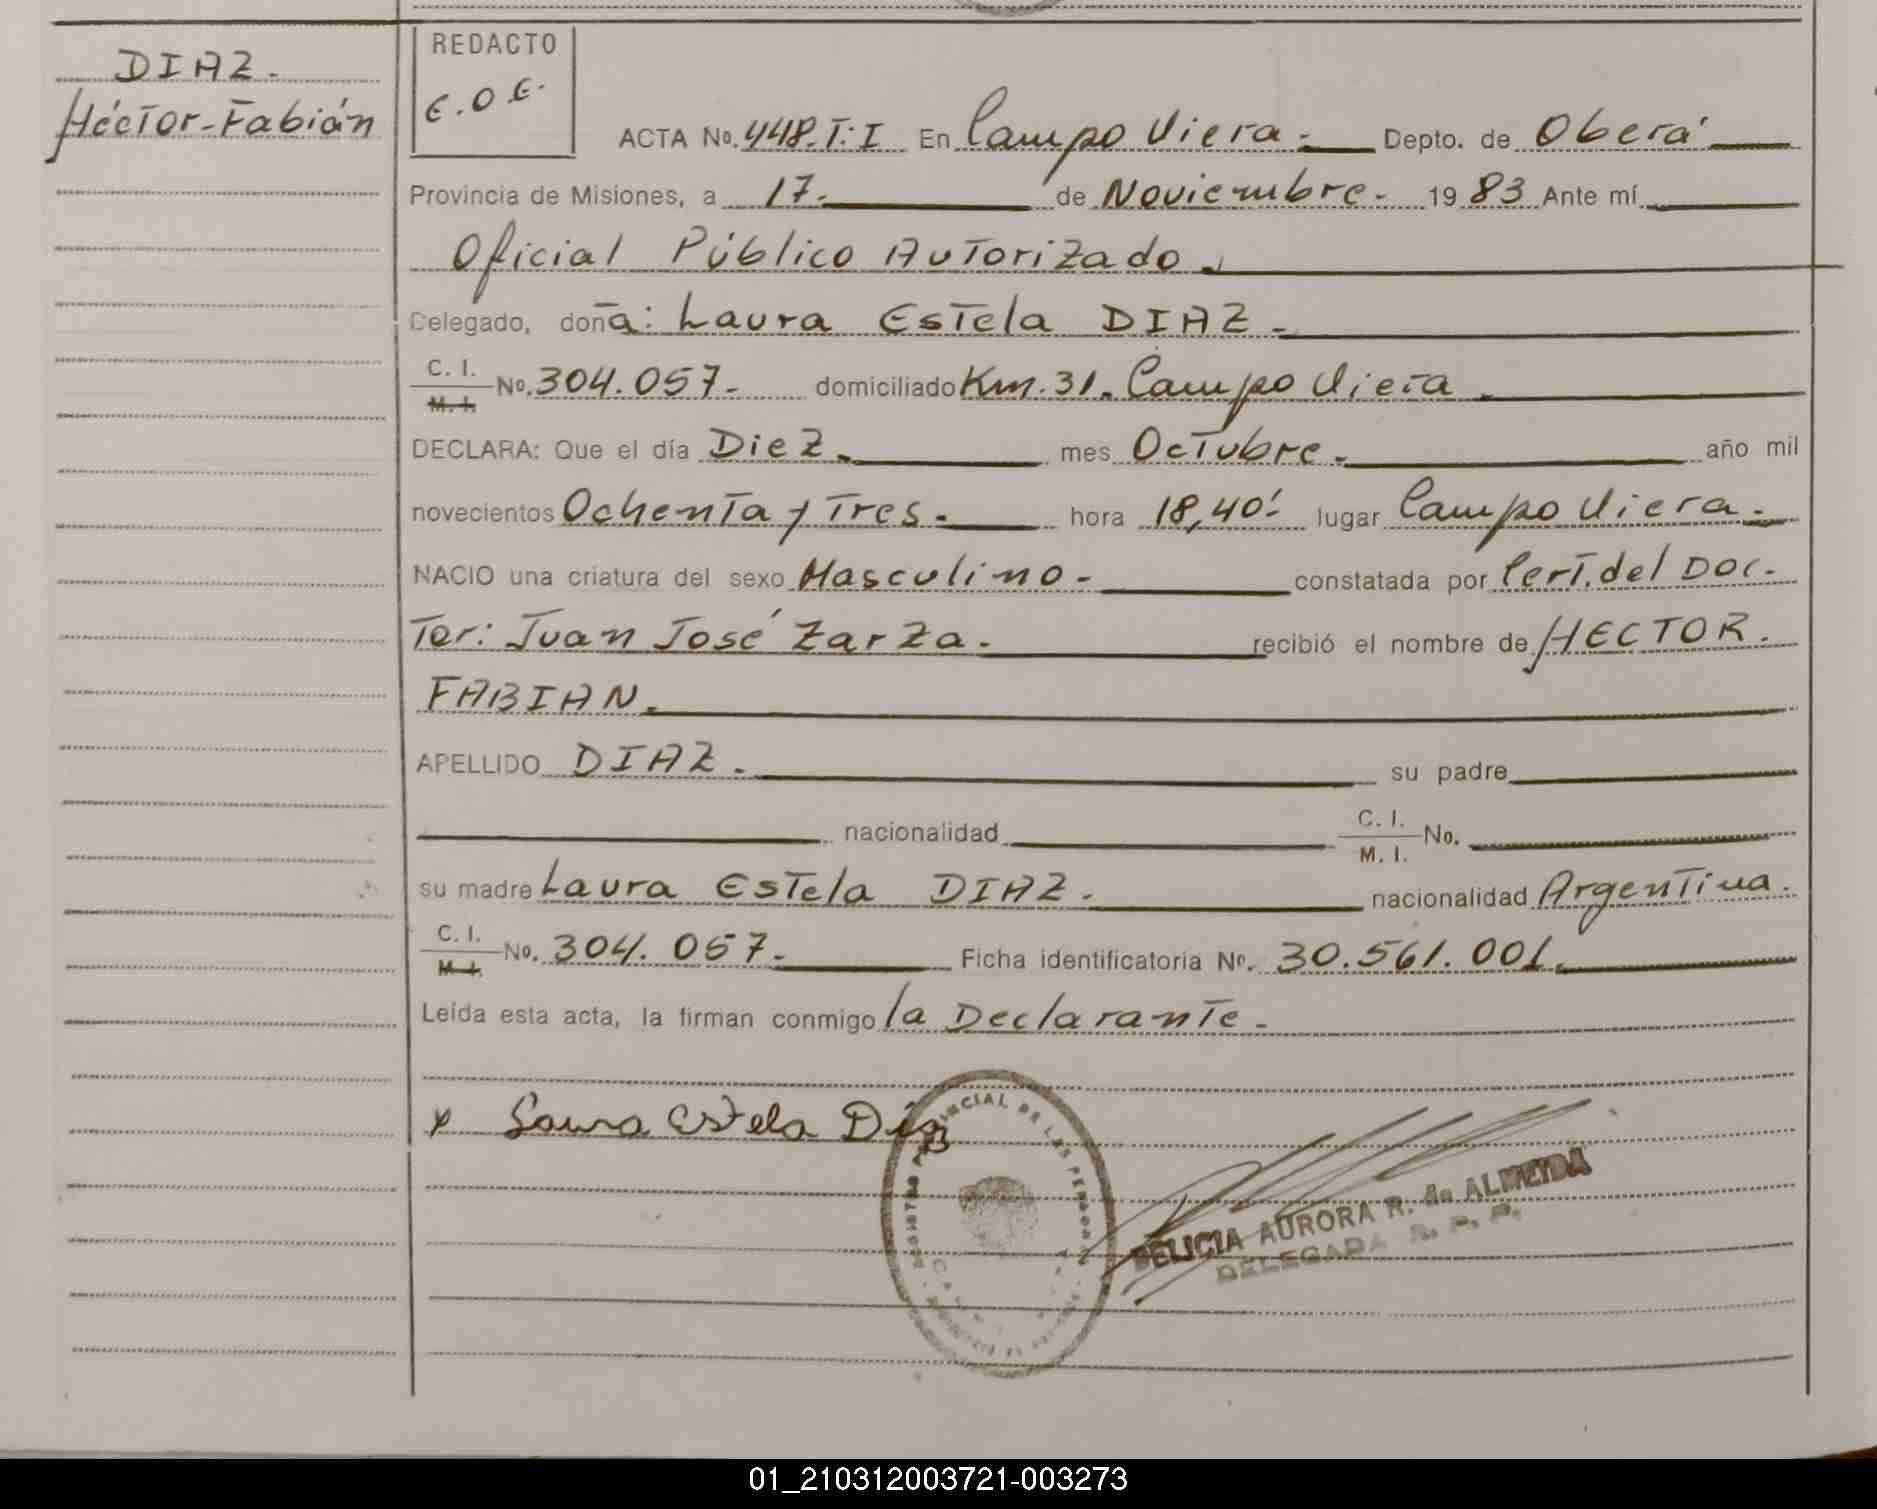 DIAZ.
Héctor-Fabián
REDACTO
E.O.E.
ACTA No. 448.T:I En Campo Viera.- Depto. de Oberá
Provincia de Misiones, a 17.- de Noviembre.- 19 83 Ante mí
Oficial Público Autorizado.
Delegado, doña: Laura Estela DIAZ.-
C. I.
M. I.
No. 304.057.- domiciliado Km.31. Campo Viera.
DECLARA: Que el día Diez.- mes Octubre.- año mil
novecientos Ochenta y Tres.- hora 18,40'- lugar Campo Viera.-
NACIO una criatura del sexo Masculino.- constatada por Cert. del Doc-
tor: Juan José Zarza.- recibió el nombre de HECTOR.
FABIAN.
APELLIDO DIAZ.- su padre
nacionalidad C. I.
M. I.
No.
su madre Laura Estela DIAZ.- nacionalidad Argentina.
C. I.
M. I.
No. 304.057.- Ficha identificatoria No. 30.561.001.
Leída esta acta, la firman conmigo la Declarante.-
x Laura Estela Díaz
REGISTRO PROVINCIAL DE LAS PERSONAS
FELICIA AURORA R. de ALMEIDA
DELEGADA R. P. P.
01_210312003721-003273